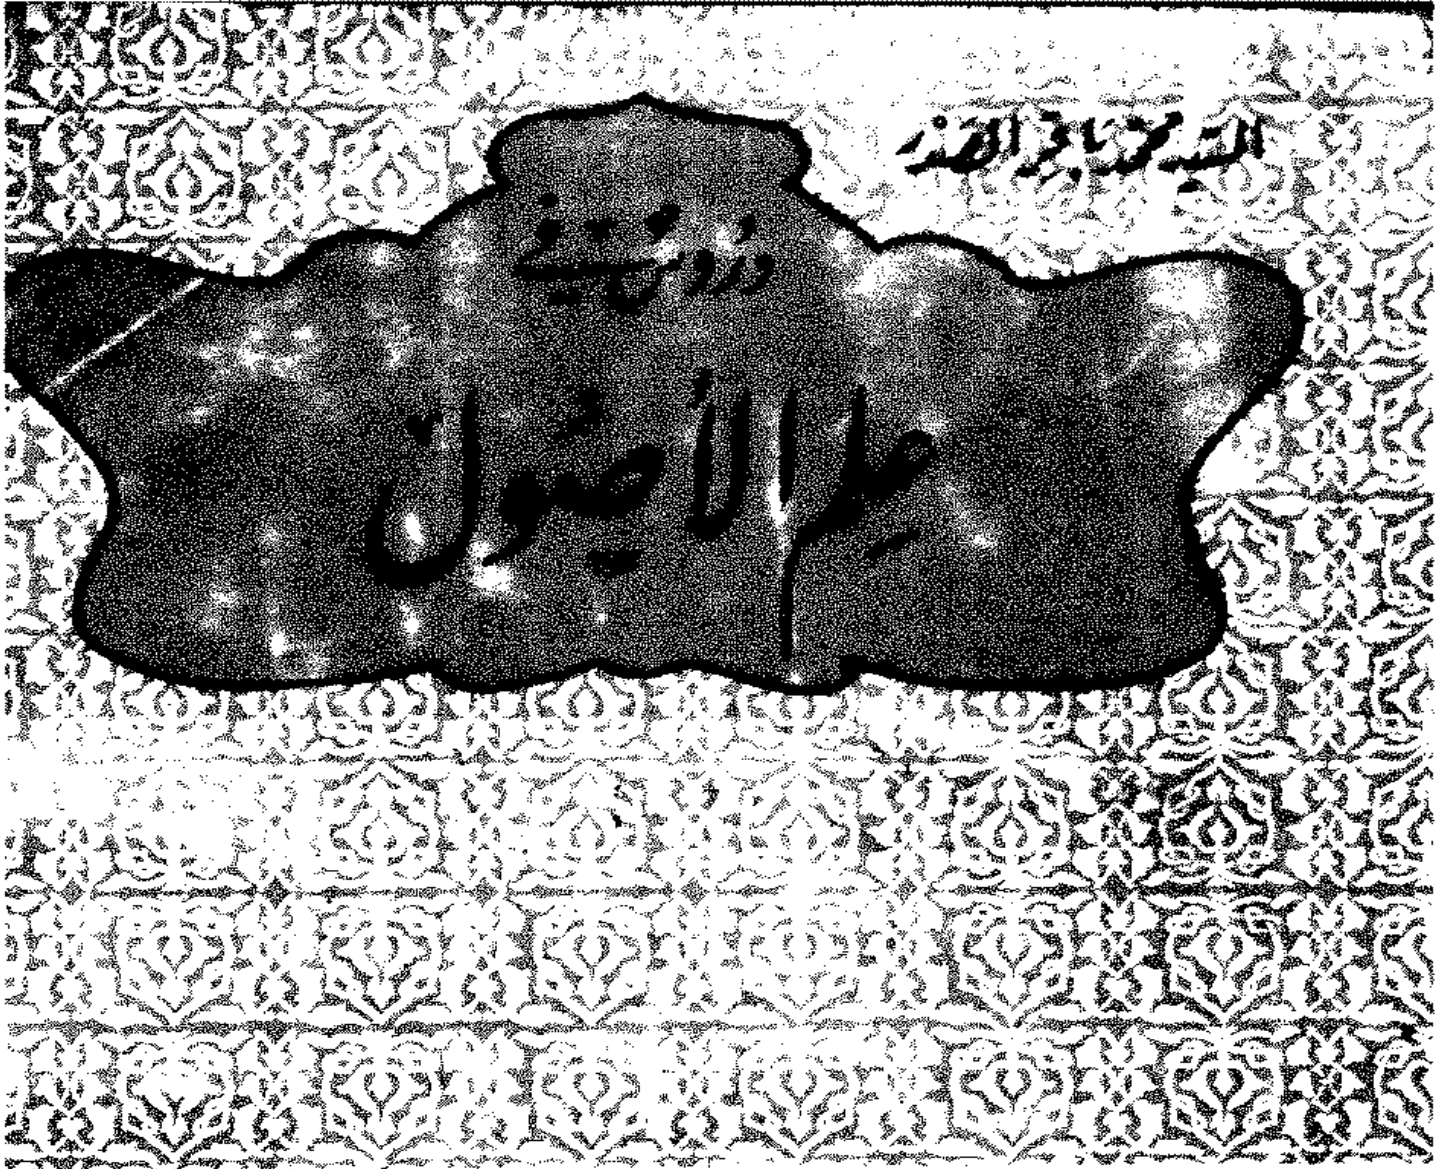 السيد محمد باقر الصدر
دروس في
علم الأصول